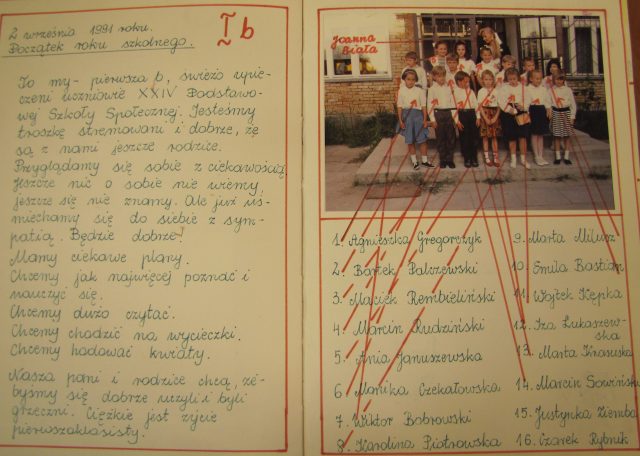 2 września 1991 roku.
Początek roku szkolnego.
I b
To my - pierwsza b, świeżo upie-
czeni uczniowie XXIV Podstawo-
wej Szkoły Społecznej. Jesteśmy
troszkę stremowani i dobrze, że
są z nami jeszcze rodzice.
Przyglądamy się sobie z ciekawością
Jeszcze nic o sobie nie wiemy,
jeszcze się nie znamy. Ale już uś-
miechamy się do siebie z sym-
patią. Będzie dobrze!
Mamy ciekawe plany.
Chcemy jak najwięcej poznać i
nauczyć się.
Chcemy dużo czytać.
Chcemy chodzić na wycieczki.
Chcemy hodować kwiaty.
Nasza pani i rodzice chcą, że-
byśmy się dobrze uczyli i byli
grzeczni. Ciężkie jest życie
pierwszoklasisty.
Joanna
Biała
1. Agnieszka Gregorczyk
2. Bartek Palczewski
3. Maciek Rembieliński
4. Marcin Rudziński
5. Ania Januszewska
6. Monika Czekałowska
7. Wiktor Bobrowski
8. Karolina Piotrowska
9. Marta Milusz
10. Emila Bastian
11. Wojtek Kępka
12. Iza Łukaszew-
ska
13. Marta
14. Marcin Sowińsk
15. Justynka Ziemba
16. Czarek Rybnik